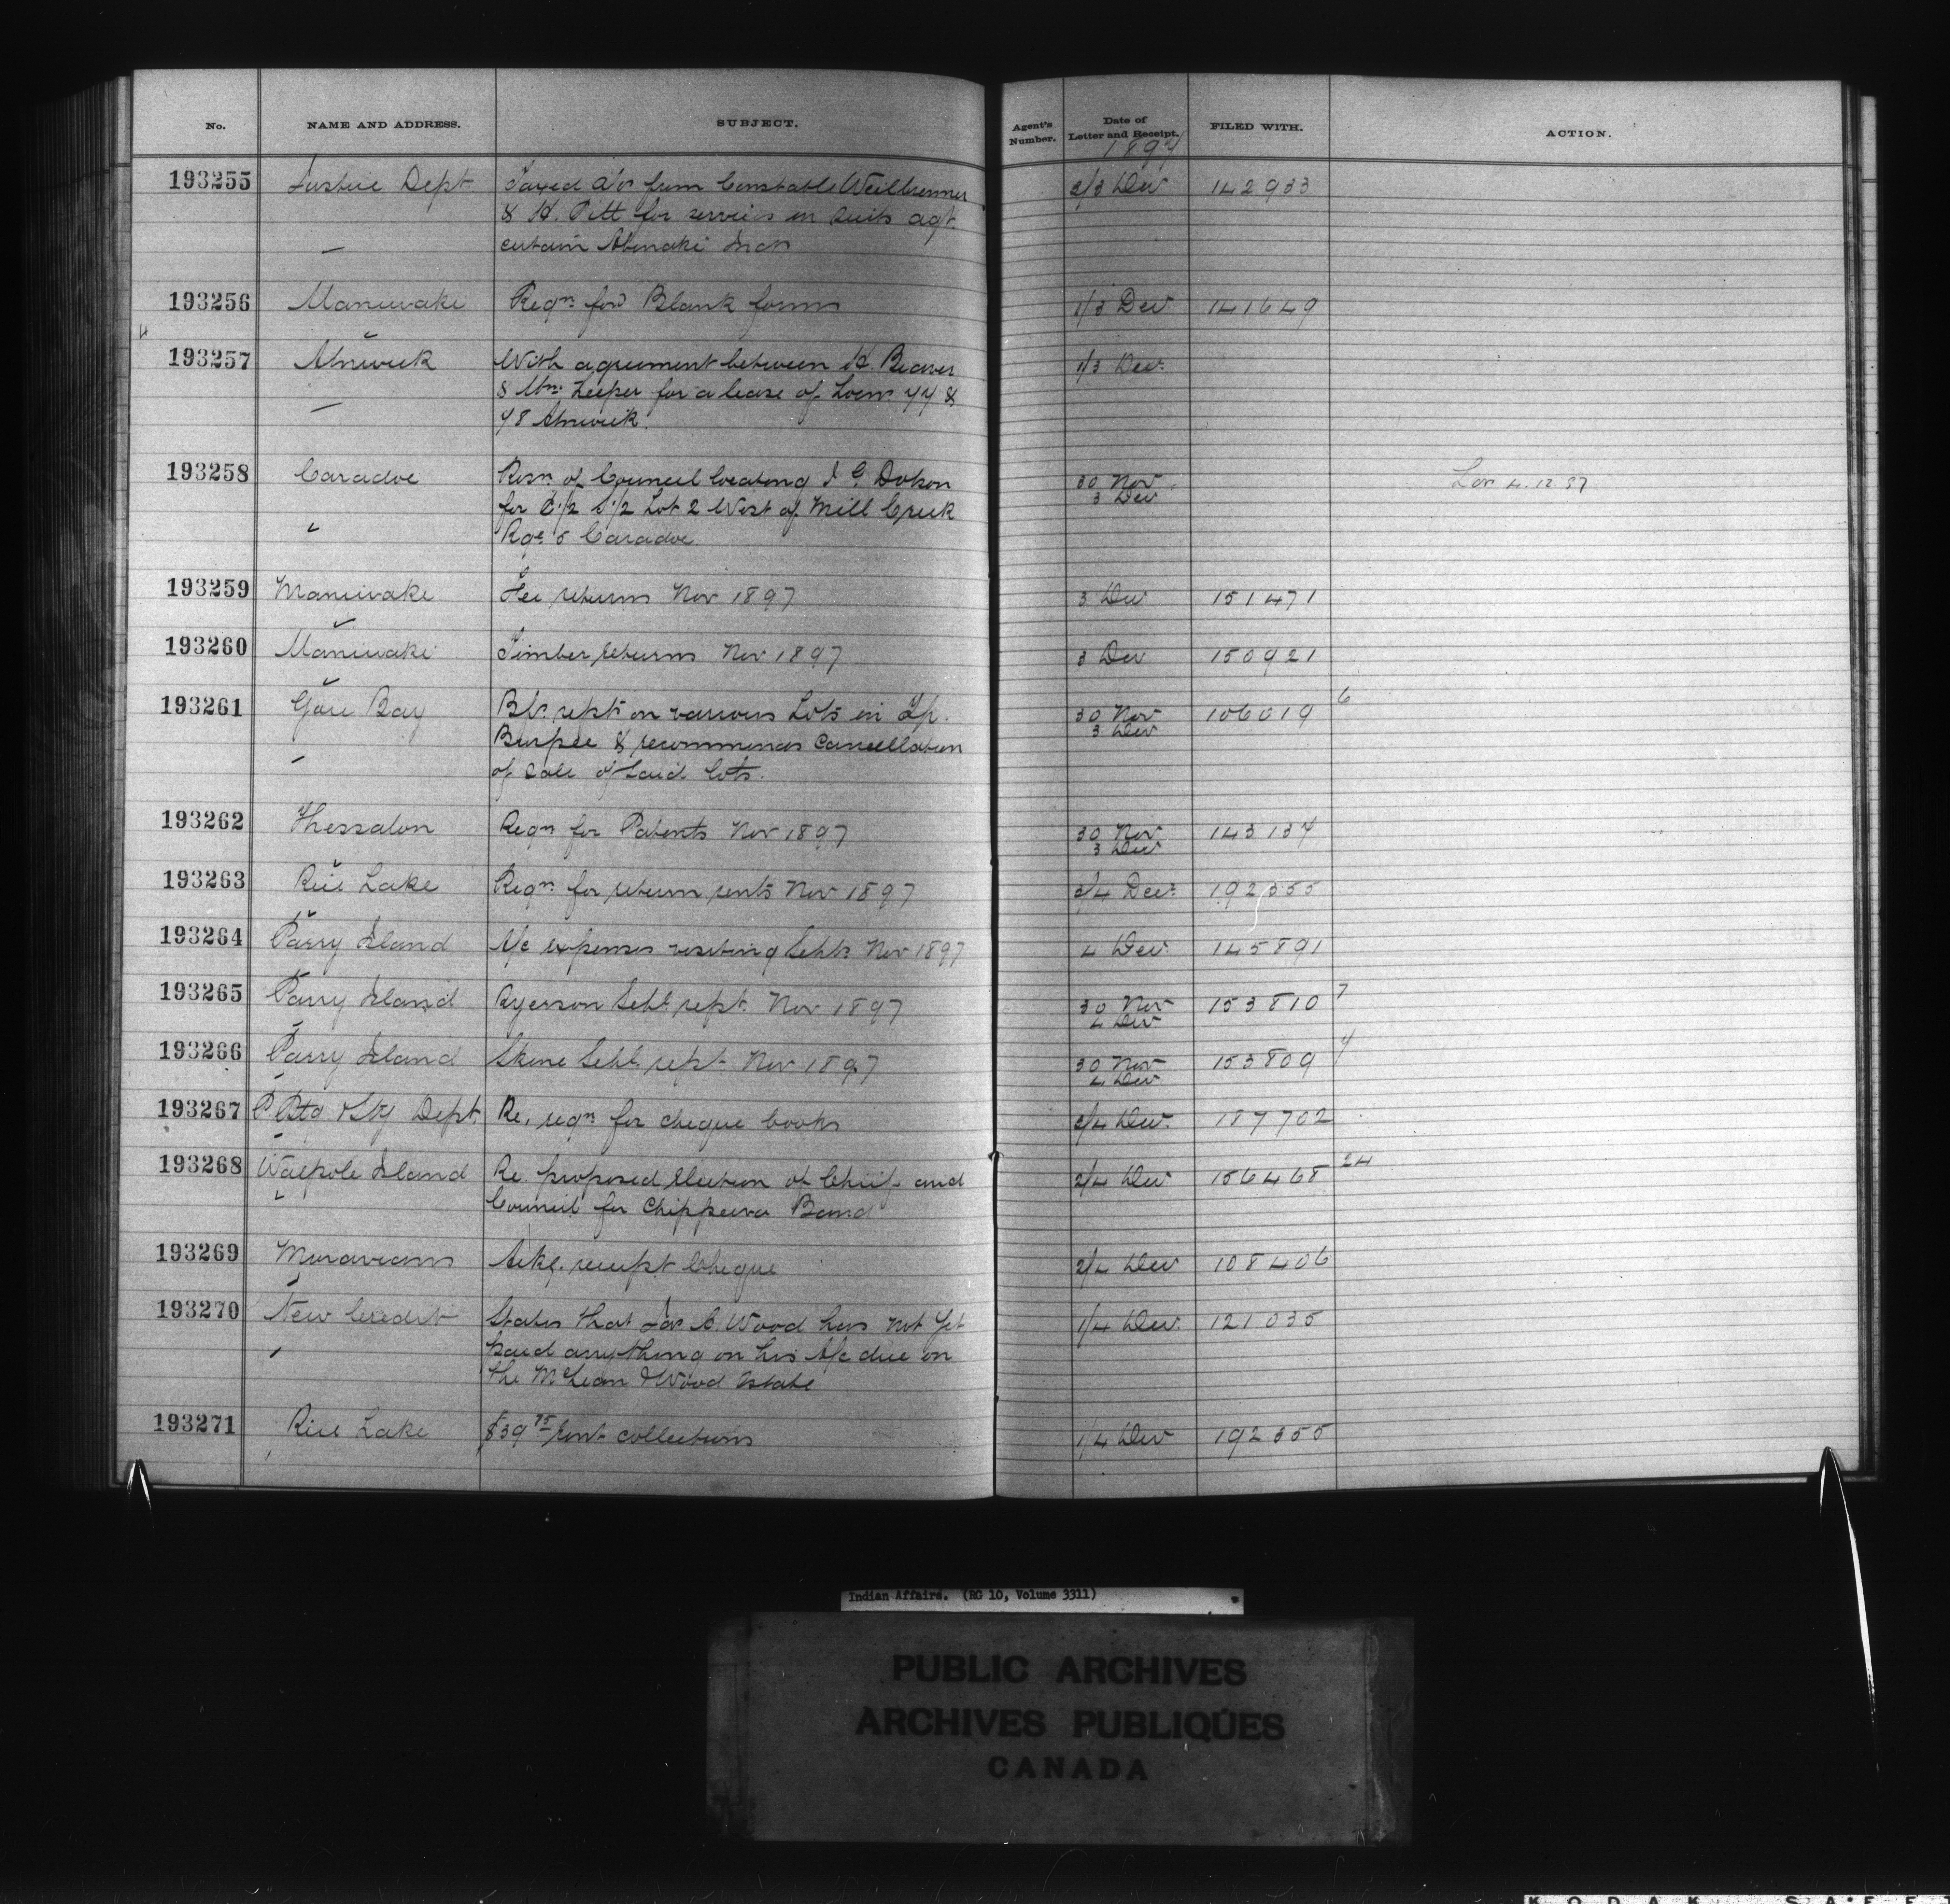 No. NAME AND ADDRESS. SUBJECT. Agent's Number. Date of Letter and Receipt. FILED WITH. ACTION.
1897
193255 Justice Dept Taxed a/cs from Constable Weilbrenner 2/3 Dec 142933
& H. Pitt for services in suits agt.
certain Abenaki Inds
193256 Maniwaki Reqn. for Blank forms 1/3 Dec 141649
193257 Alnwick With agreement between H. Beaver 1/3 Dec.
& Wm. Leeper for a lease of Locn. 77 &
78 Alnwick.
193258 Caradoc Resn. of Council locating J. G. Dokon 30 Nov 3 Dec 4.12.97
for E 1/2 S 1/2 Lot 2 West of Mill Creek
Rge. 5 Caradoc
193259 Maniwake Fee returns Nov 1897 3 Dec 151471
193260 Maniwaki Timber returns Nov 1897 3 Dec 150921
193261 Gore Bay Bl. rept. on various Lots in Tp. 30 Nov 3 Dec 106019 6
Burpee & recommends cancellation
of sale of said lots.
193262 Thessalon Reqn for Patents Nov 1897 30 Nov 3 Dec 143137
193263 Rice Lake Reqn. for return rents Nov 1897 3/4 Dec. 192355
193264 Parry Island A/c expenses visiting Schls Nov 1897 4 Dec. 145891
193265 Parry Island Ryerson Schl. rept. Nov 1897 30 Nov 4 Dec 153810 7
193266 Parry Island Skene Schl. rept. Nov 1897 30 Nov 4 Dec 153809 7
193267 P Ptg & Sty Dept. Re. reqn. for cheque books 2/4 Dec. 187702
193268 Walpole Island Re. proposed election of Chief and 2/4 Dec 156468 24
Council for Chippewa Band
193269 Moravians Ackg. receipt Cheque 2/4 Dec 108406
193270 New Credit States that Jas A. Wood has not yet 1/4 Dec. 121035
paid anything on his A/c due on
the McLean & Wood Estate
193271 Rice Lake $39 75 Rent collections 1/4 Dec 192355
Indian Affairs. (RG 10, Volume 3311)
PUBLIC ARCHIVES
ARCHIVES PUBLIQUES
CANADA
KODAK SAFE